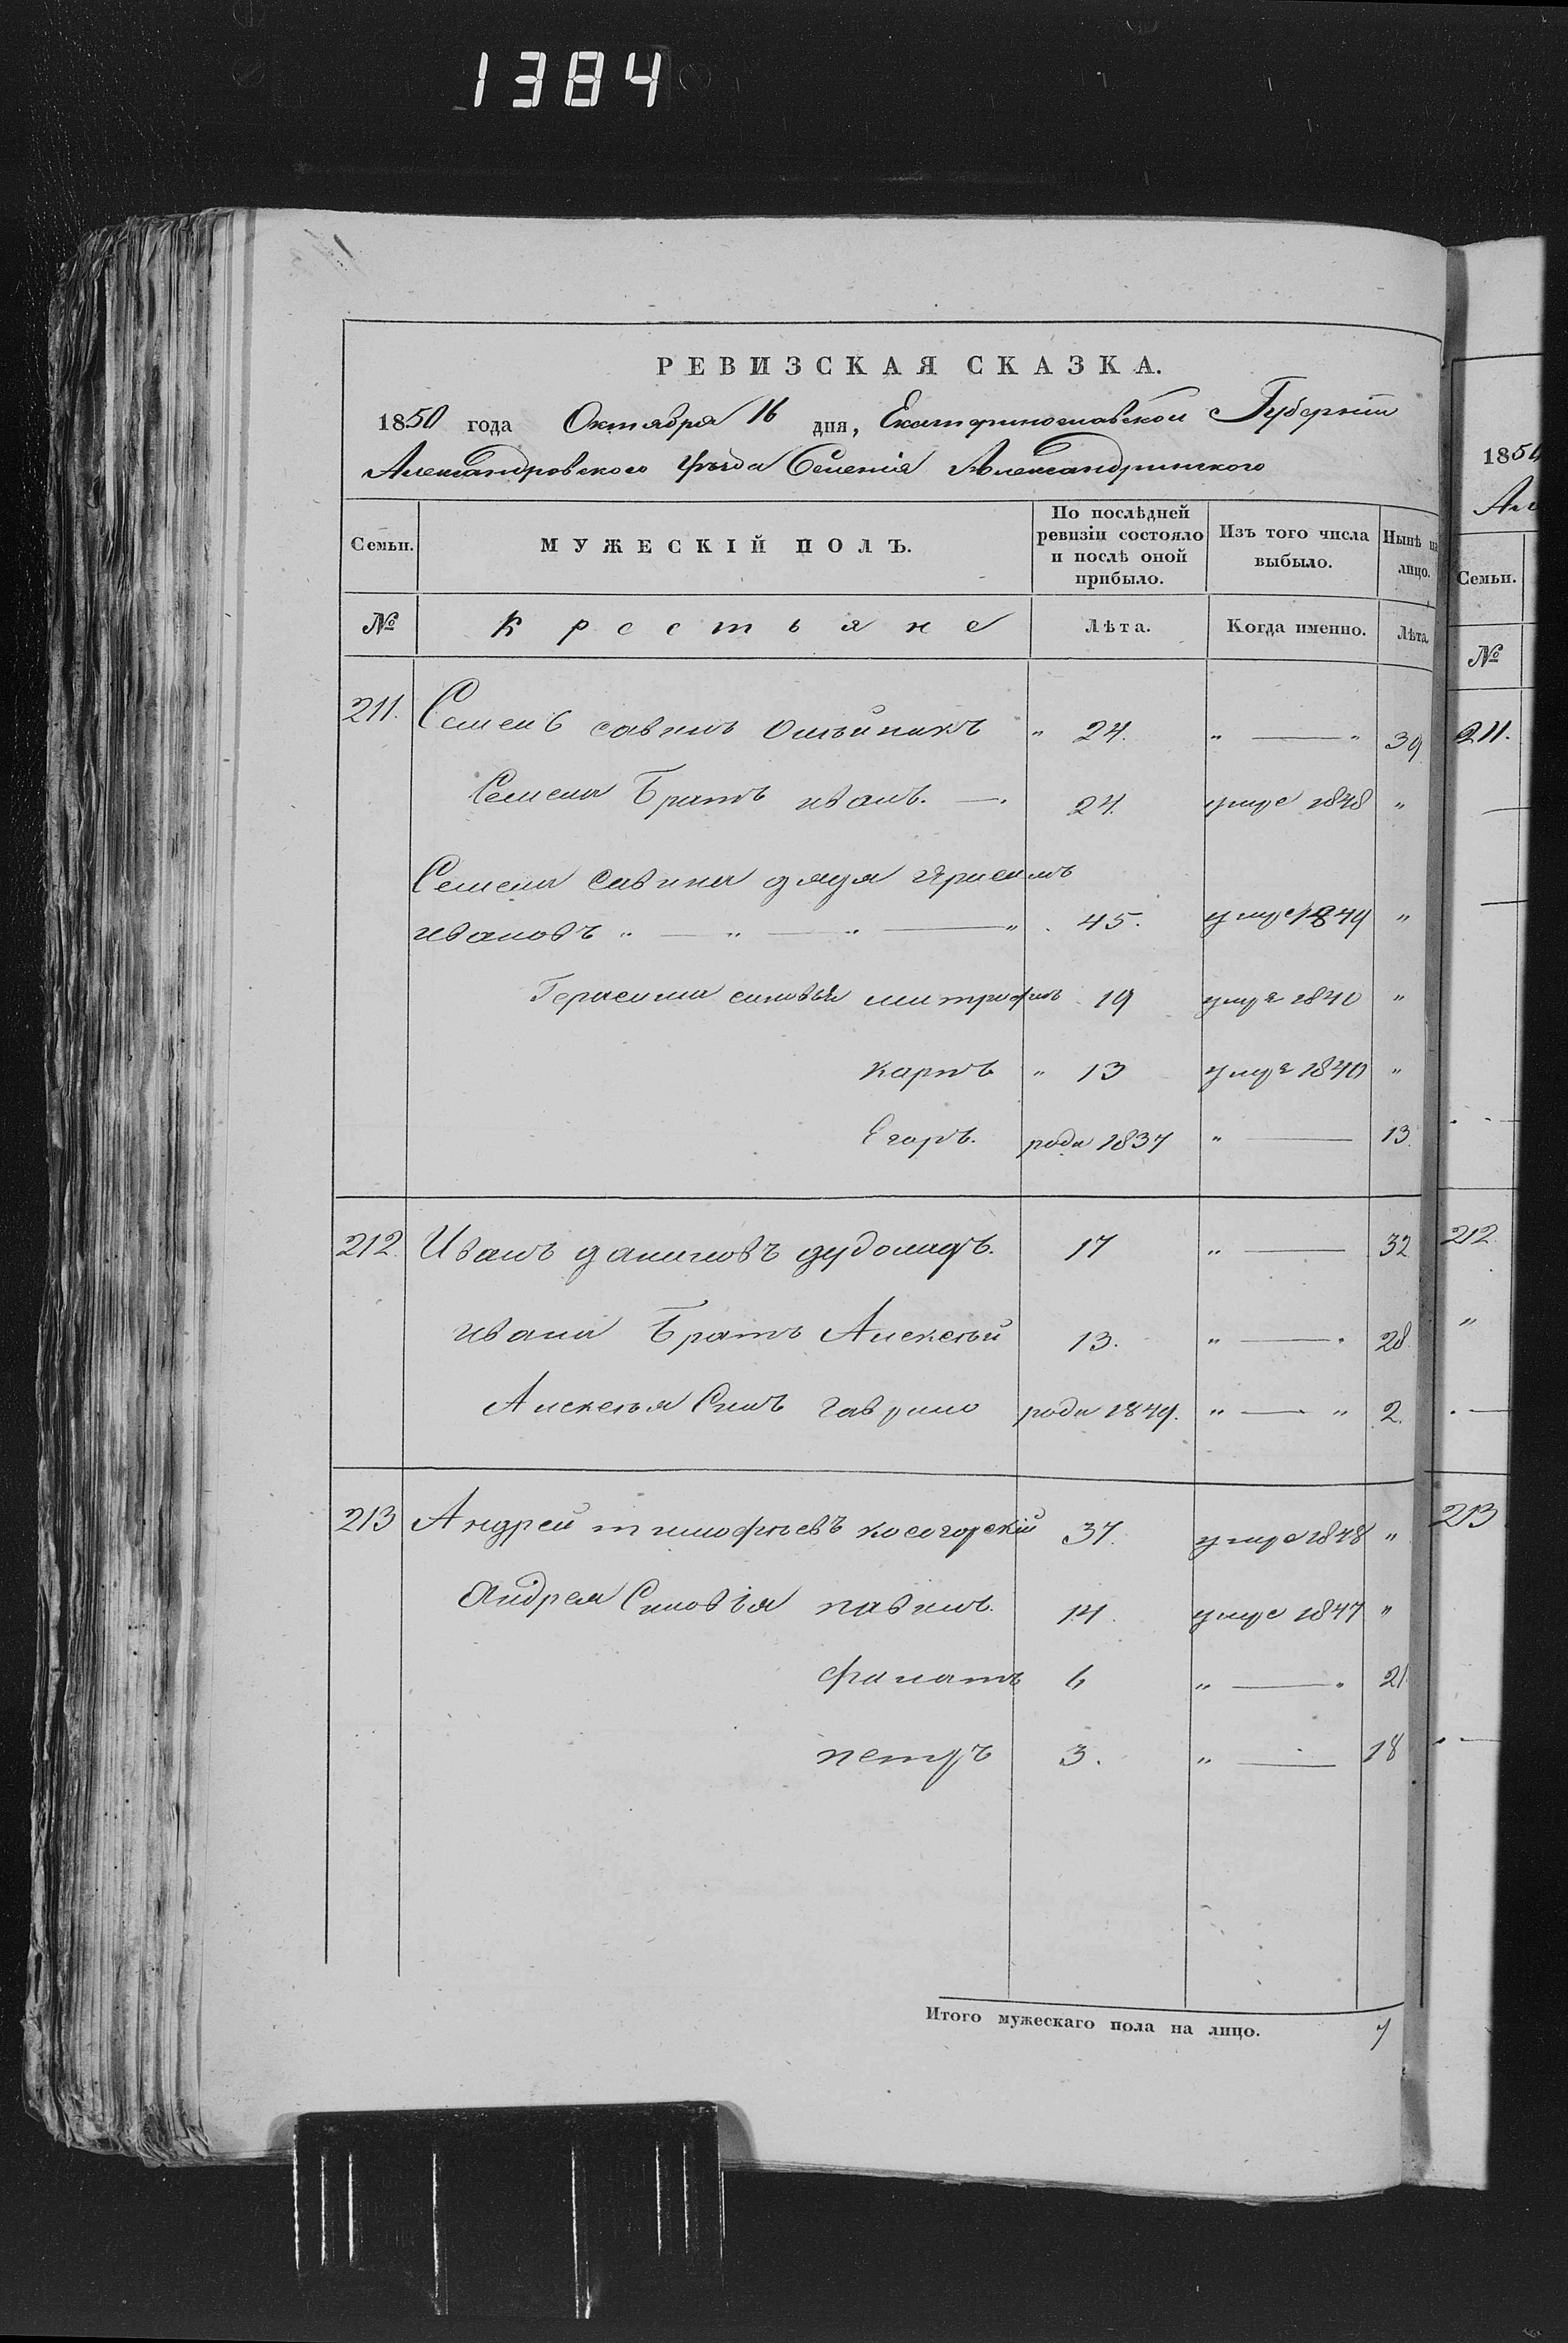 1384
РЕВИЗСКАЯ СКАЗКА.
1850 года Октября 16 дня, Екатеринославской Губерніи
Александровского Уѣзда Селенія Александринского
Семьи. МУЖЕСКІЙ ПОЛЪ. По послѣдней ревизіи состояло и послѣ оной прибыло. Изъ того числа выбыло. Нынѣ на лицо.
№ Крестьяне Лѣта. Когда именно. Лѣта.
211. Семенъ савинъ Олѣйникъ " 24. " — " 39
Семена Братъ иванъ. — . 24. умре 1848 "
Семена Савина дядя Герасимъ
ивановъ " — " — " — " . 45. умре 1849 "
Герасима синовья митрофанъ 19 умре 1840 "
карпъ " 13 умре 1840 "
Егоръ. роди 1837 " — 13.
212. Иванъ даниловъ дудочидъ. 17 " — 32
ивана Братъ Алексѣй 13. " — . 28.
Алексѣя Синъ гаврило роди 1849. " — " 2.
213 Андрей тимофѣевъ косогорскій 37. умре 1848 "
Андрея Синовія павилъ. 14. умре 1847 "
филатъ 6 " — " 21
петръ 3. " — 18
Итого мужескаго пола на лицо. 7
1850
Але
Семьи.
№
211.
212.
"
213